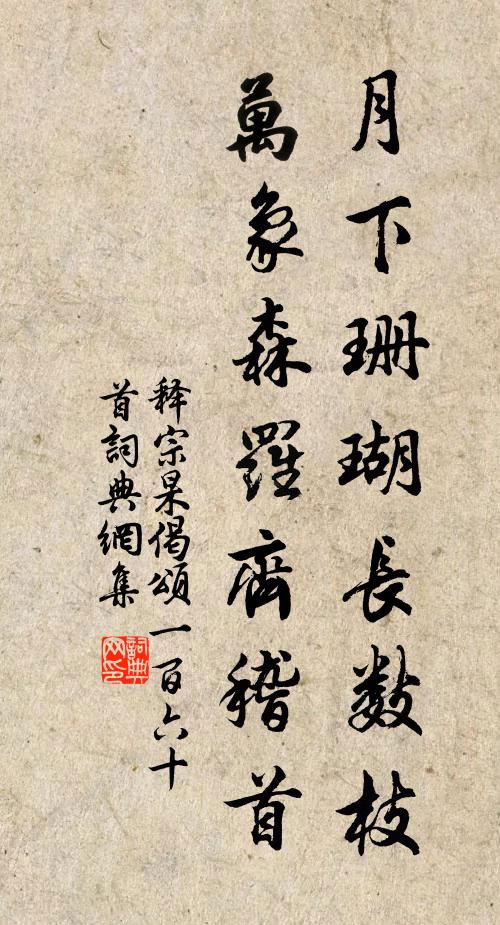 月下珊瑚長數枝
萬象森羅齊稽首
释宗杲偈頌一百六十
首詞典網集
詞典
网印